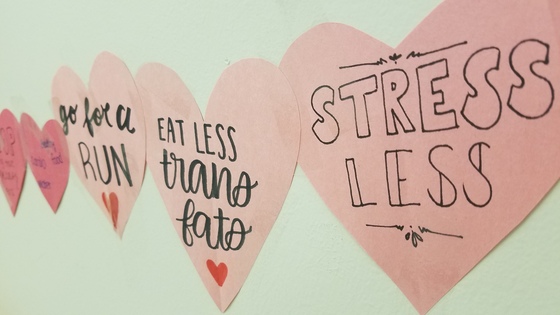 go for a
RUN
EAT LESS
trans
fats
STRESS
LESS